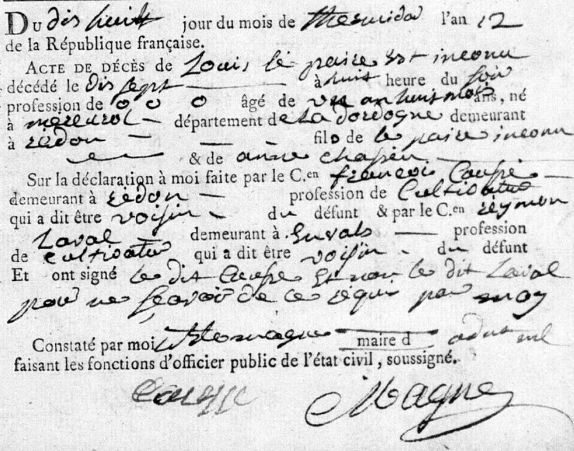 DU dis huit jour du mois de thermidor l'an 12
de la République française.
ACTE DE DÉCÈS de Louis le paire est inconu
décédé le dis sept à huit heure du soir
profession de o o o âgé de un an huit mois ans, né
à département de La dordogne demeurant
à rédon fils de le paire inconu
& de anne chapin
Sur la déclaration à moi faite par le C.en françois Caupe
demeurant à rédon profession de Cultivatur
qui a dit être voisin du défunt & par le C.en reymon
Laval demeurant à profession
de Cultivatur qui a dit être voisin du défunt
Et ont signé le dit Caupe Et non le dit Laval
pour ne sçavoir de ce réqui par moy
Constaté par moi magne maire d
faisant les fonctions d'officier public de l'état civil, soussigné.
Magne